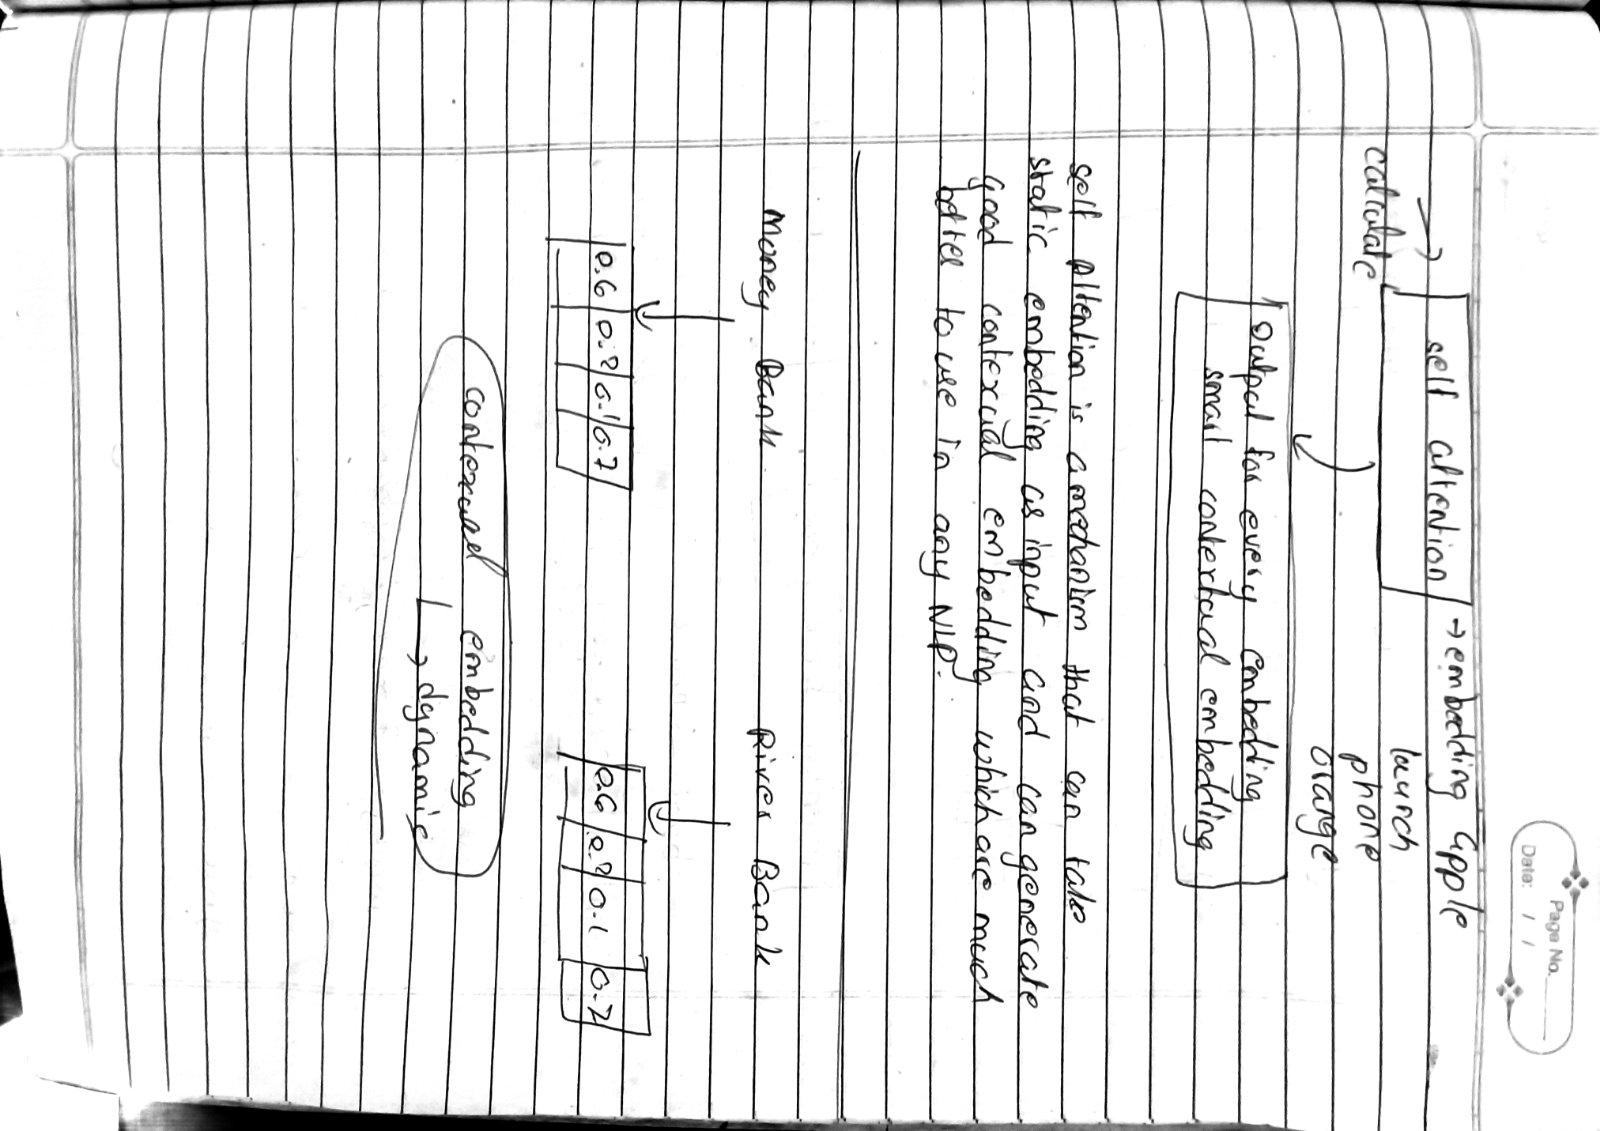 Page No.
Date: / /
→ self attention → embedding apple
calculate launch
phone
orange
Output for every embedding
smart contextual embedding
self Attention is a mechanism that can take
static embedding as input and can generate
good contexual embedding which are much
better to use in any NLP.
Money Bank River Bank
0.6 0.2 0.1 0.7 0.6 0.2 0.1 0.7
contexual embedding
→ dynamic